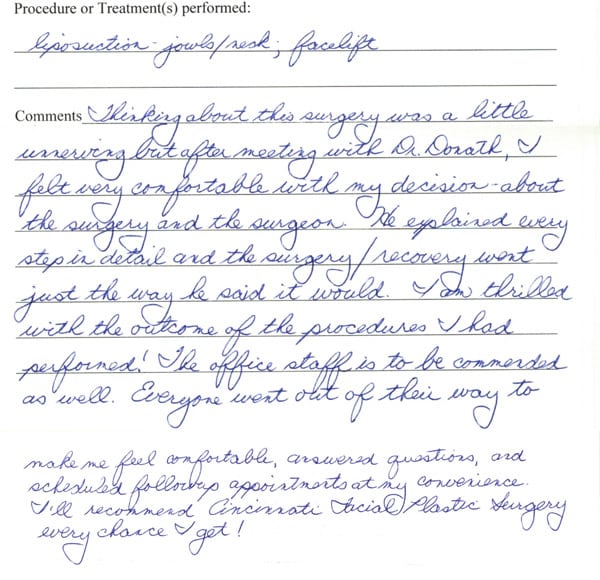 Procedure or Treatment(s) performed:
liposuction - jowls/neck; facelift
Comments Thinking about this surgery was a little
unnerving but after meeting with Dr. Donath, I
felt very comfortable with my decision - about
the surgery and the surgeon. He explained every
step in detail and the surgery/recovery went
just the way he said it would. I am thrilled
with the outcome of the procedures I had
performed! The office staff is to be commended
as well. Everyone went out of their way to
make me feel comfortable, answered questions, and
scheduled followup appointments at my convenience.
I'll recommend Cincinnati Facial Plastic Surgery
every chance I get!